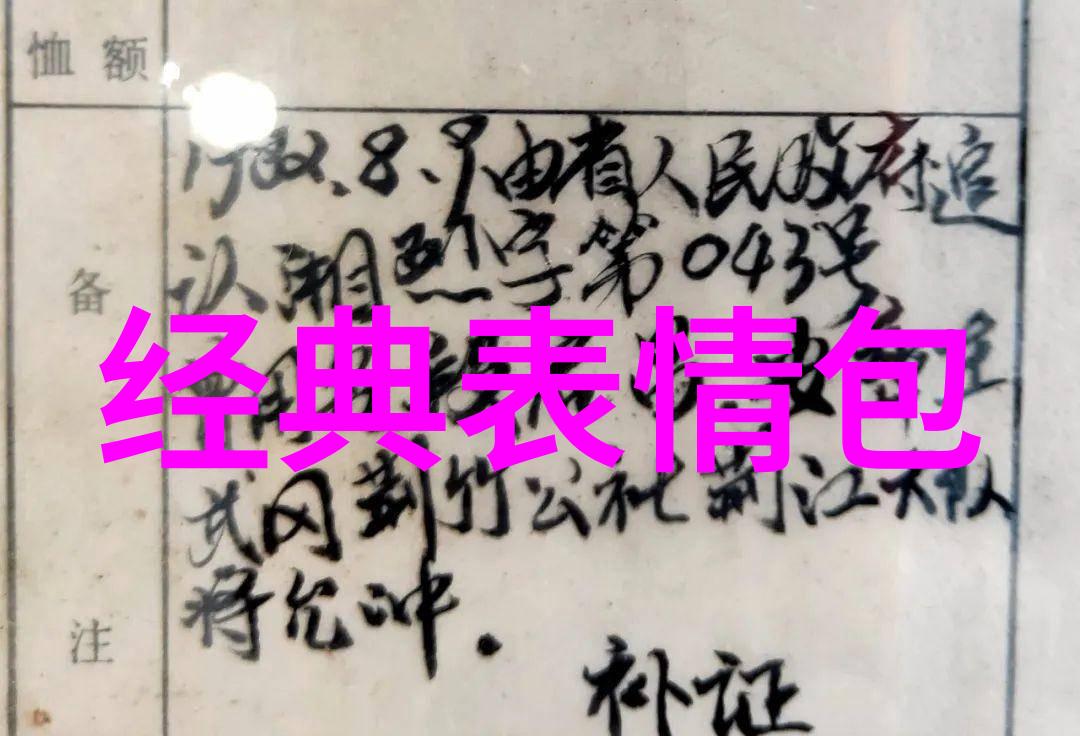 恤额
备
注
1982.8.9由省人民政府追
认湘烈字第043号
经典表情包
武冈荆竹公社荆江大队
将允冲.
补证